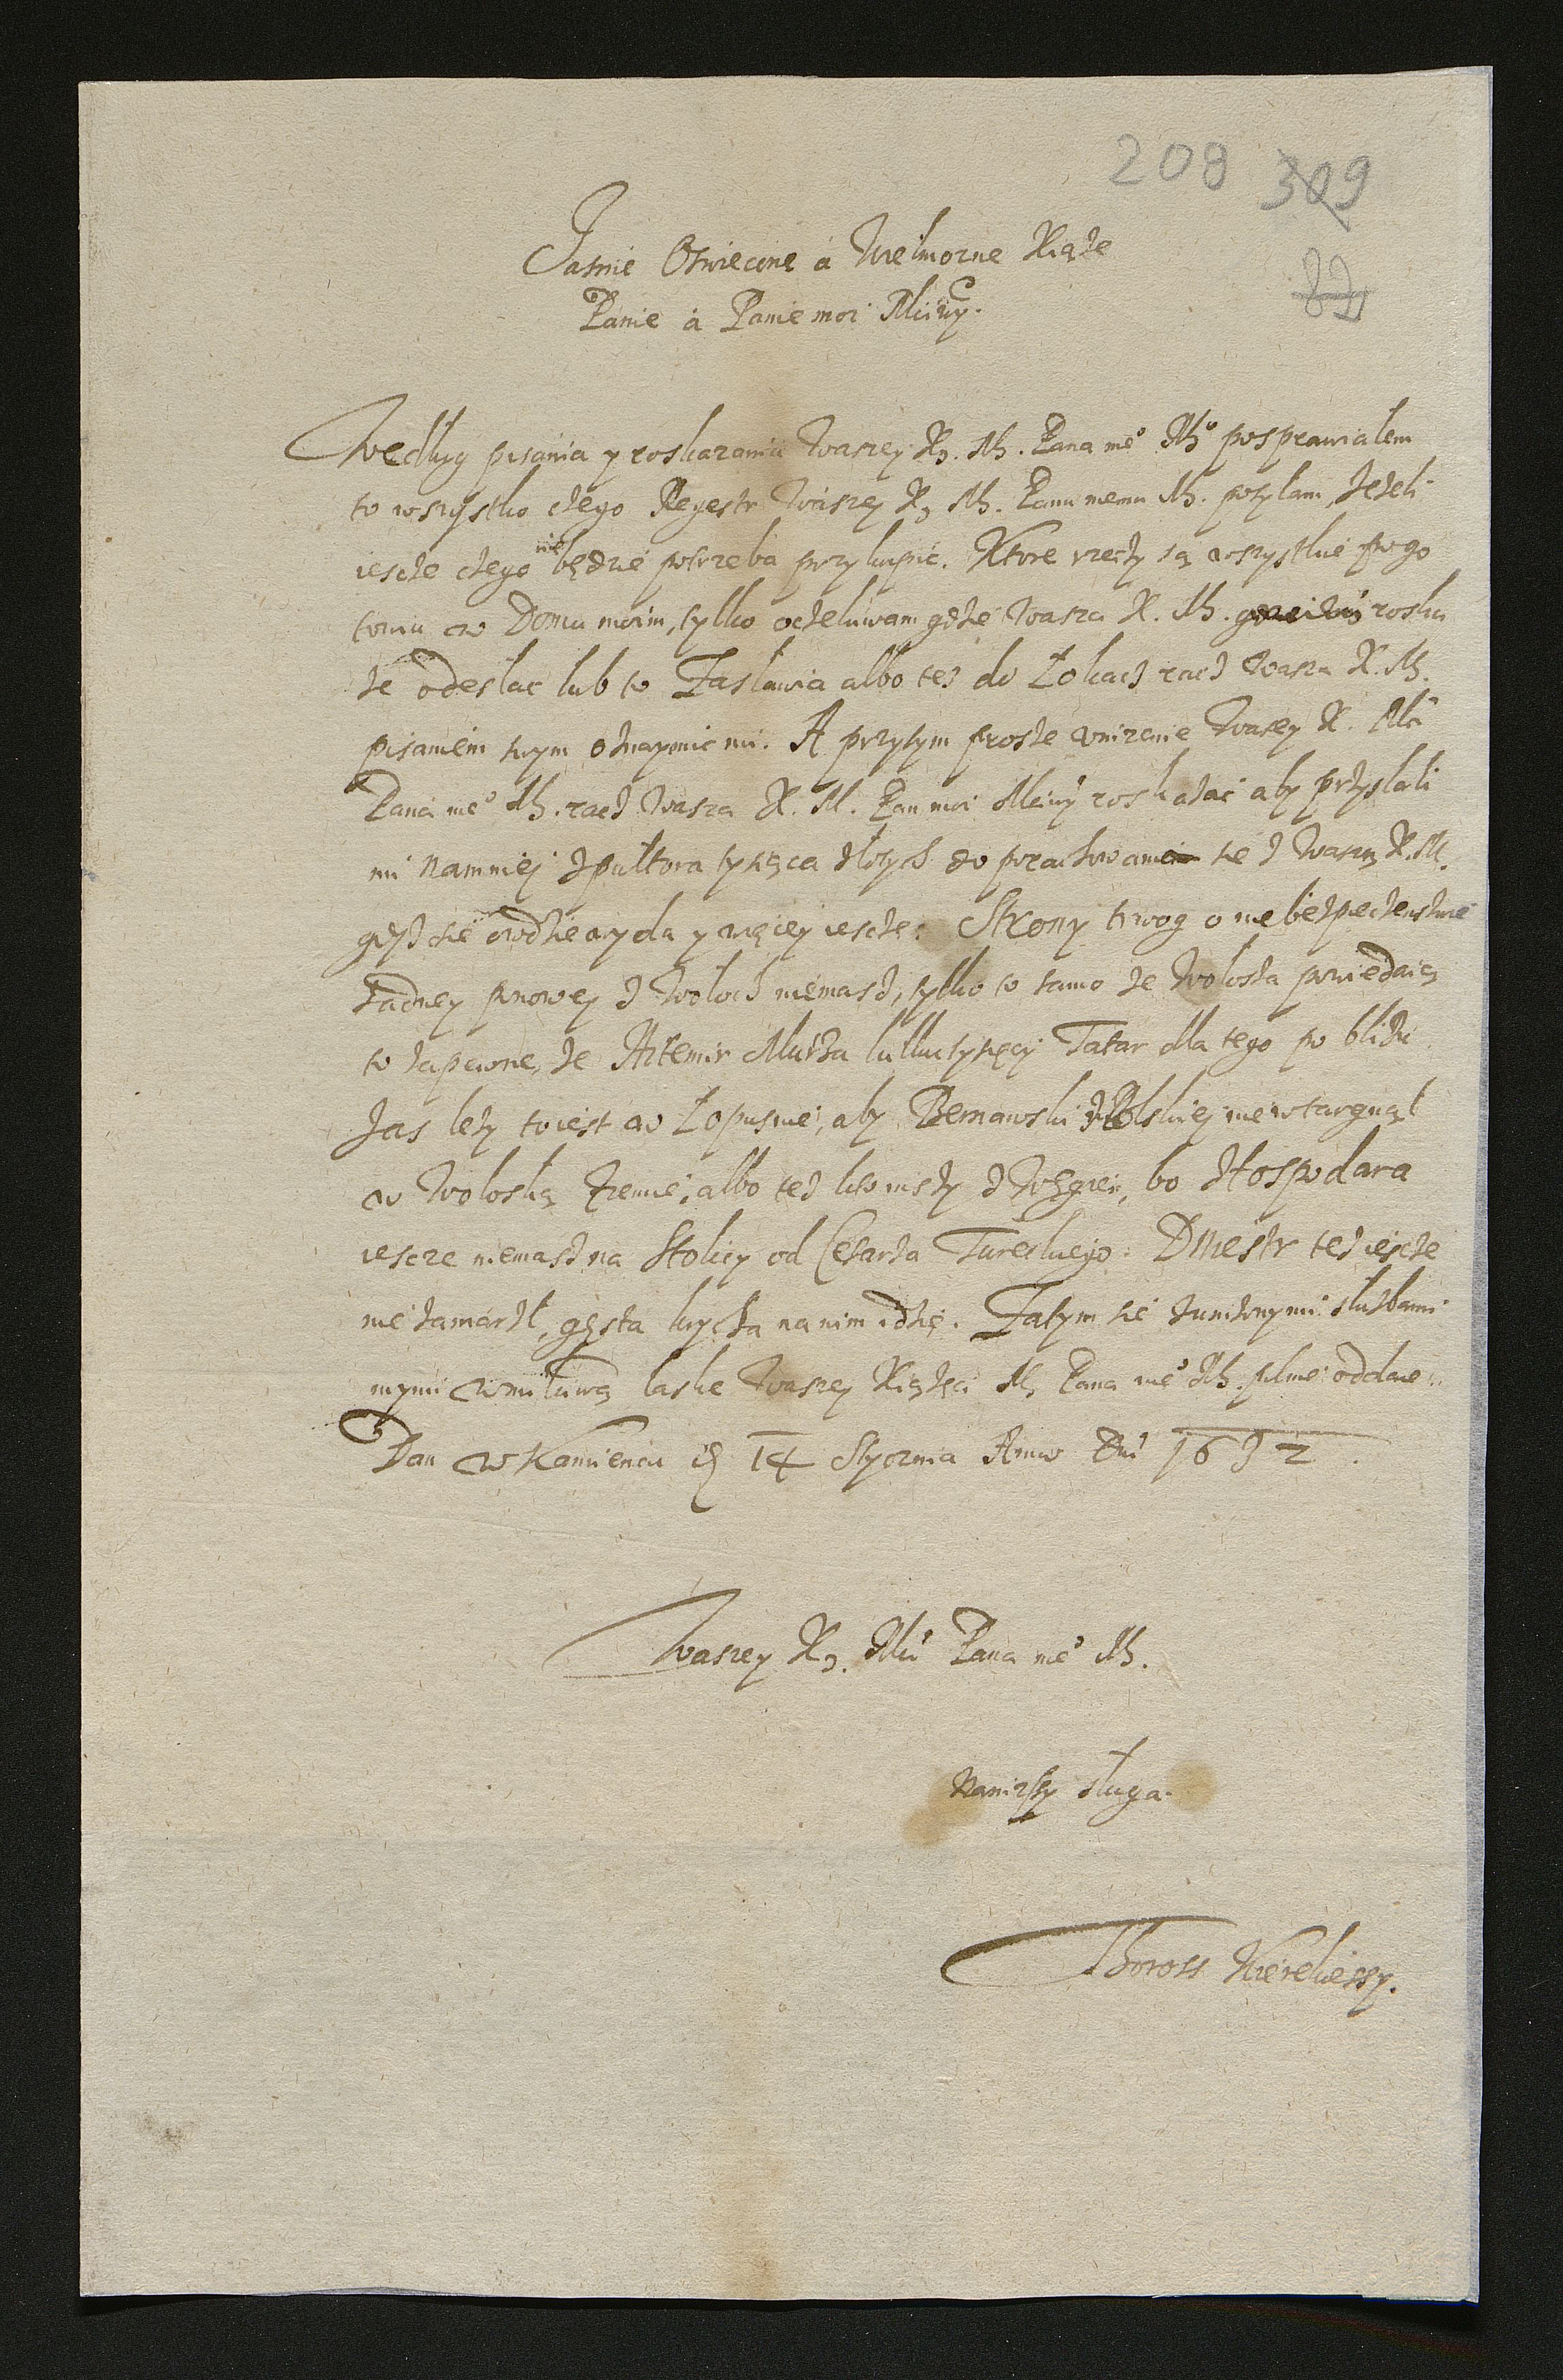 208 309
Jasnie Oswiecone a Wielmozne Xiąże
Panie a Panie moi Mciwy.
Według pisania y roskazania Waszey X. M. Pana me° M° posprawiałem
to wszystko czego Regestr Waszey X. M. Panu memu M. posyłam, Jeżeli
iescze czego nie będzie potrzeba przykupić. Ktore rzeczy są wszystkie pogo
towiu w Domu moim, tylko oczekiwam gdzie Wasza X. M. roska
że odesłac lub to Zasławia albo też do racz Wasza X. M.
pisaniem swym oznaymic mi. A przytym prosze vnizenie Waszey X. Mci
Pana me° M. racz Wasza X. M. Pan moi Mciwy roskazać aby przysłali
mi namniey z pułtora tysięca złotych do porachowania się z Waszą X. M.
gdysz się owdzie wyda y więcey iescze. Strony trwog o niebezpieczenstwie
żadney pnowey z Wołoch niemasz, tylko to samo że Wołosza powiedaią
to zapewne, że Artemir Murza kilku tysięcy Tatar dla tego po bliżu
Jas leży to iest w Łopusnie, aby Bernawski z Polskiey nie wtargnął
w Wołoską Ziemię, albo też kto inszy z Węgier, bo Hospodara
iescze niemasz na Stolicy od Cesarza Tureckiego: Dniestr też iescze
nie zamarzł, gęsta krycza na nim idzie. Zatym się z unizonymi służbami
mymi w miłciwą łaskę Waszey Xiążęci M. Pana me° M. pilnie oddaię
Dan w Kamiencu 14 Stycznia Anno Dni 1632.
Waszey X. Mci Pana me° M.
Naniższy sługa.
Thoross Kierekieszy.